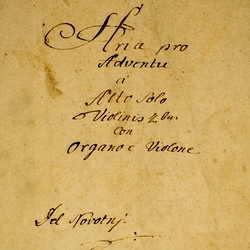 Aria pro
Adventu
à
Alto Solo
Violinis 2bus
Con
Organo e Violone
Del Novotnj.